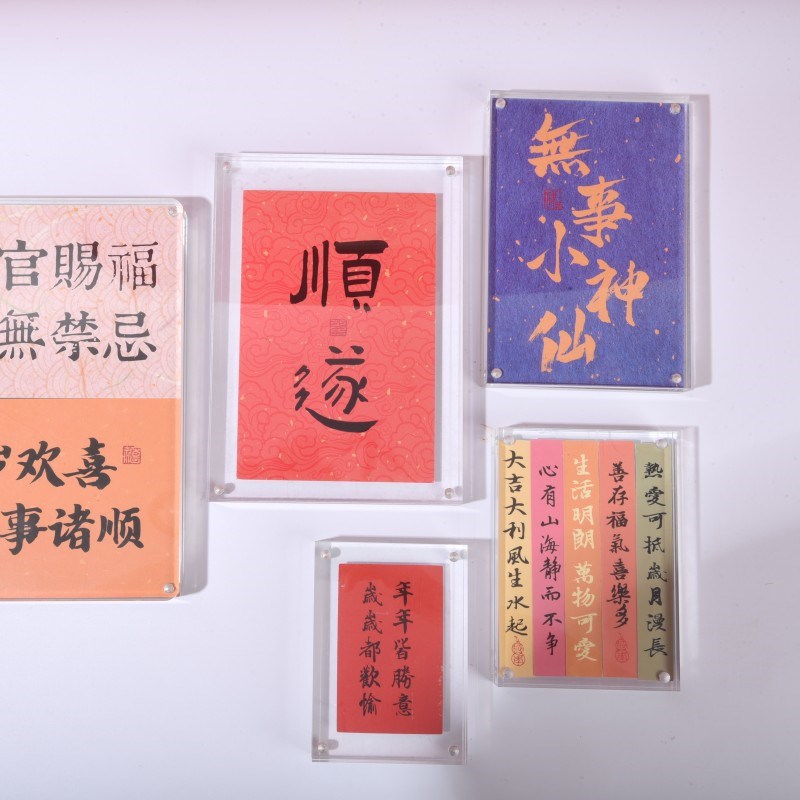 官賜福
無禁忌
欢喜
事诸顺
順
遂
無事
小神
仙
年年皆勝意
歲歲都歡愉
大吉大利風生水起
心有山海靜而不争
生活明朗 萬物可愛
善存福氣喜樂多
熱愛可抵歲月漫長